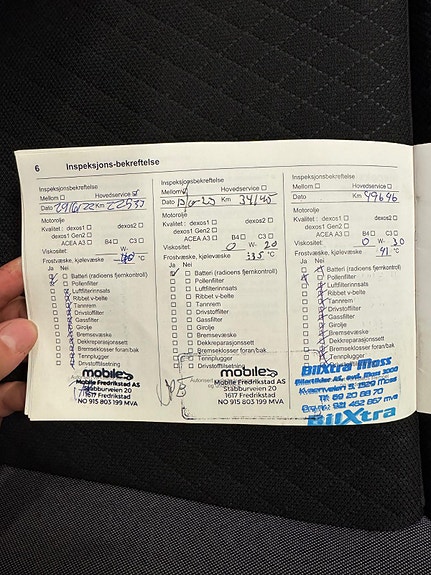 6 Inspeksjons-bekreftelse
Inspeksjonsbekreftelse
Hovedservice
Mellom
Dato 29/6/22 Km 22533
Motorolje
Kvalitet : dexos1 dexos2
dexos1 Gen2
ACEA A3 B4 C3
Viskositet W-
Frostvæske, kjølevæske -40 °C
Ja Nei
Batteri (radioens fjernkontroll)
Pollenfilter
Luftfilterinnsats
Ribbet v-belte
Tannrem
Drivstoffilter
Gassfilter
Girolje
Bremsevæske
Dekkreparasjonssett
Bremseklosser foran/bak
Tennplugger
Drivstofftilsetning
mobile
Mobile Fredrikstad AS
Stabburveien 20
1617 Fredrikstad
NO 915 803 199 MVA
Inspeksjonsbekreftelse
Hovedservice
Mellom
Dato Km 34145
Motorolje
Kvalitet : dexos1 dexos2
dexos1 Gen2
ACEA A3 B4 C3
Viskositet 0 W- 20
Frostvæske, kjølevæske -35 °C
Ja Nei
Batteri (radioens fjernkontroll)
Pollenfilter
Luftfilterinnsats
Ribbet v-belte
Tannrem
Drivstoffilter
Gassfilter
Girolje
Bremsevæske
Dekkreparasjonssett
Bremseklosser foran/bak
Tennplugger
Drivstofftilsetning
mobile
Mobile Fredrikstad AS
Stabburveien 20
1617 Fredrikstad
NO 915 803 199 MVA
Inspeksjonsbekreftelse
Hovedservice
Mellom
Dato Km 49646
Motorolje
Kvalitet : dexos1 dexos2
dexos1 Gen2
ACEA A3 B4 C3
Viskositet 0 W- 30
Frostvæske, kjølevæske -41 °C
Ja Nei
Batteri (radioens fjernkontroll)
Pollenfilter
Luftfilterinnsats
Ribbet v-belte
Tannrem
Drivstoffilter
Gassfilter
Girolje
Bremsevæske
Dekkreparasjonssett
Bremseklosser foran/bak
Tennplugger
BilXtra Moss
1529 Moss
Tlf: 69 20 88 70
921 462 867 mva
BilXtra